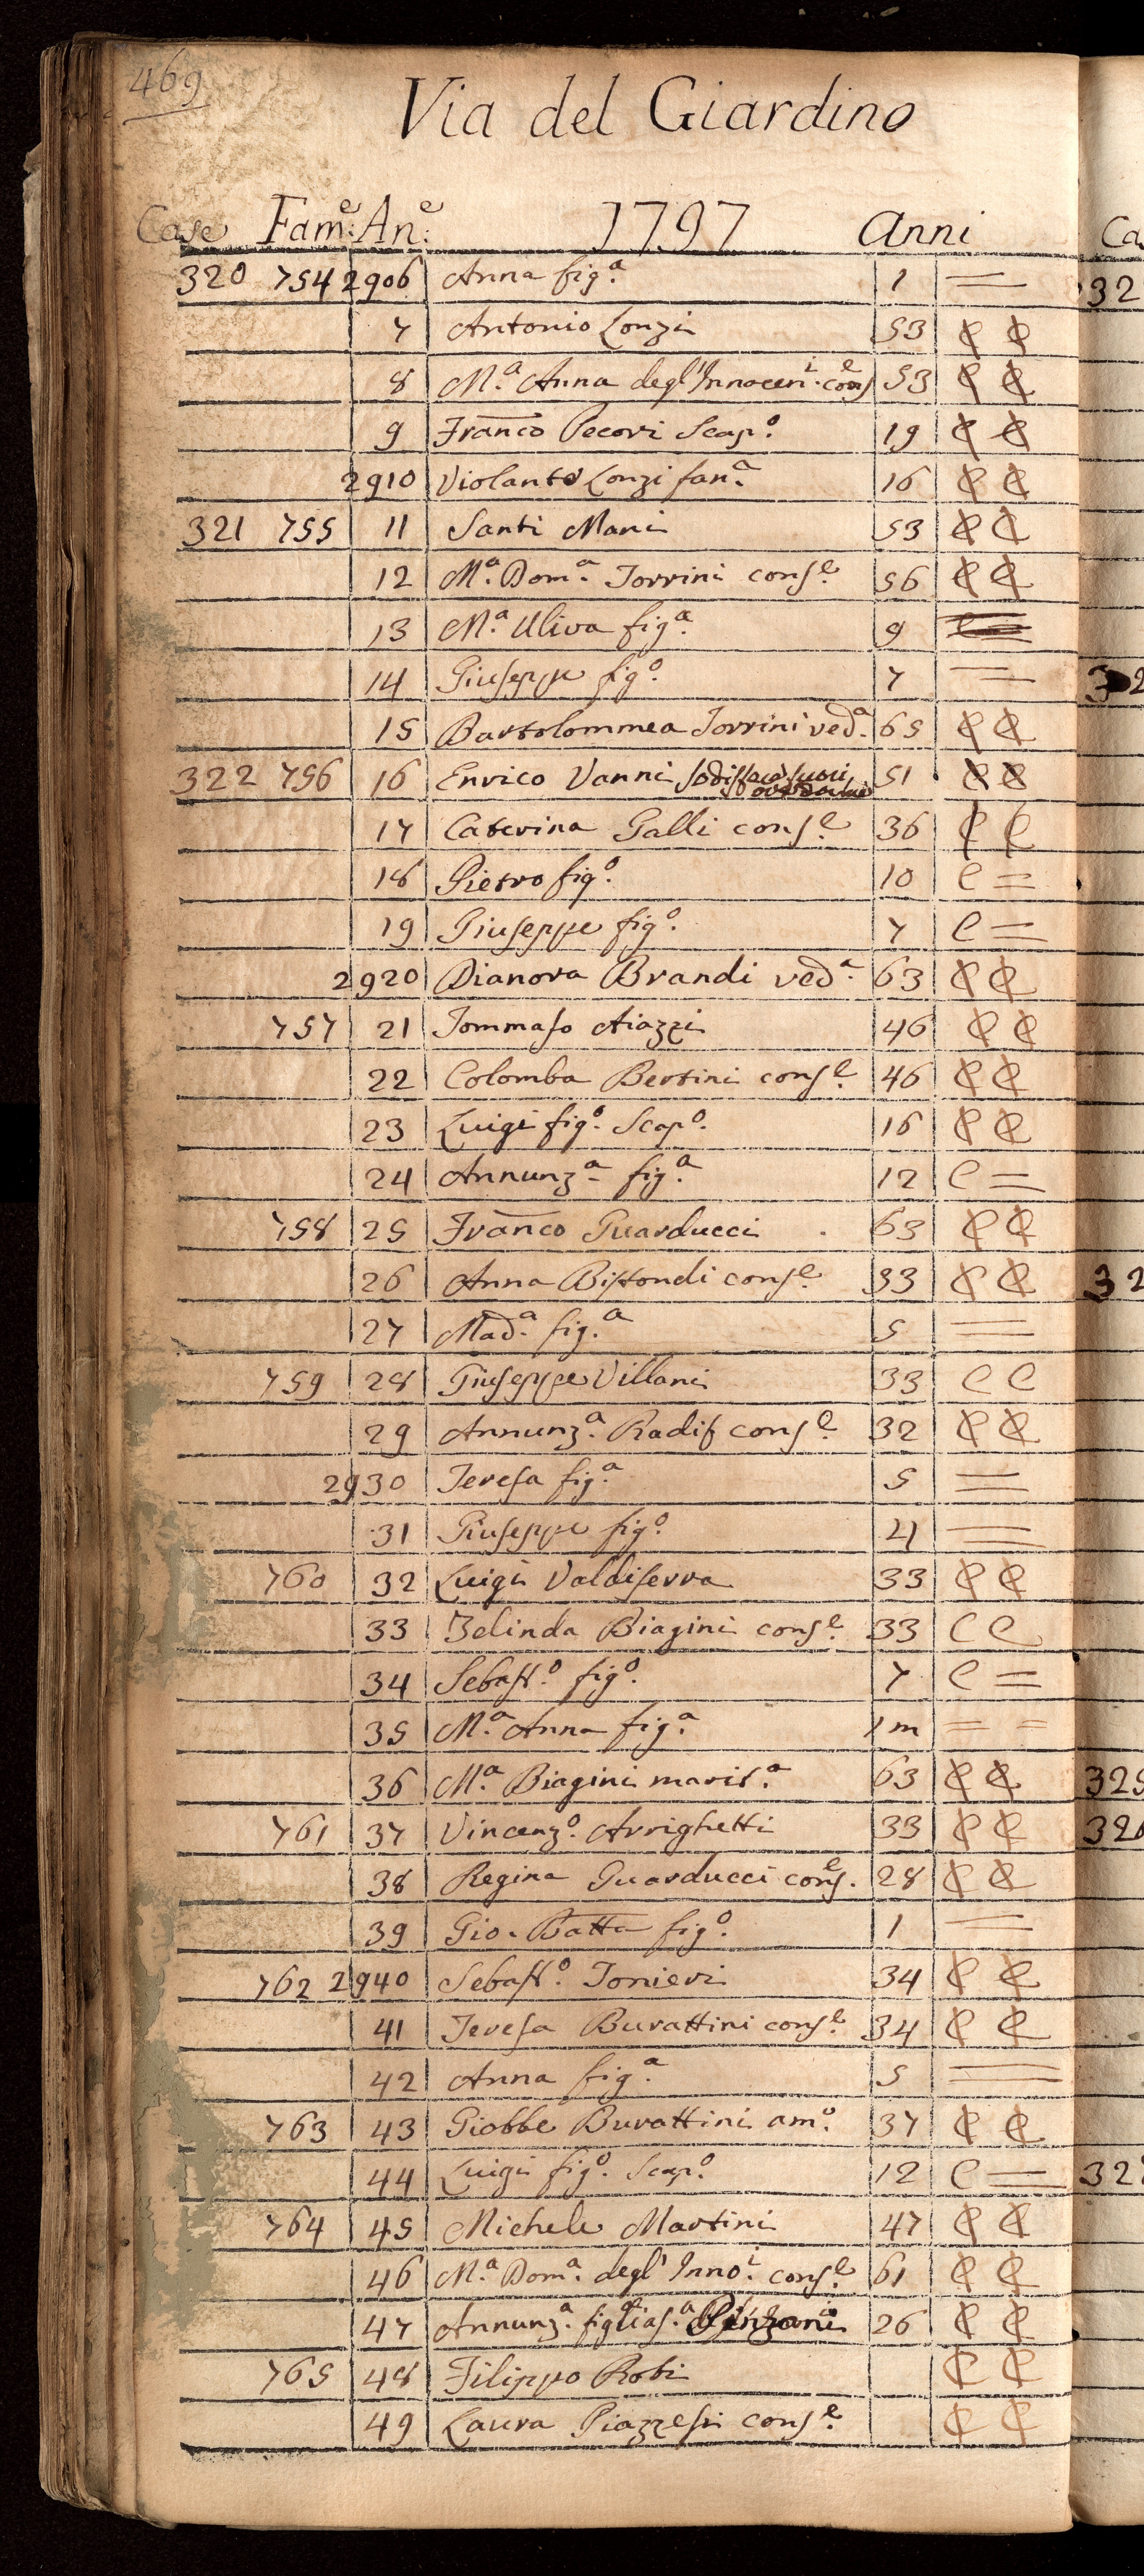 469
Via del Giardino
Case Fam.e An.e: 1797 Anni
320 754 2906 Anna fig.a 1 =
7 Antonio Lonzi 53 C C
8 M.a Anna degl'Innocen.i cons.e 53 C C
9 Franco Pecori Scap.o 19 C C
2910 Violante Lonzi fan.a 16 C C
321 755 11 Santi Mani 53 C C
12 M.a Dom.a Torrini cons.e 56 C C
13 M.a Uliva fig.a 9
14 Giuseppe fig.o 7 =
15 Bartolommea Torrini ved.a 65 C C
322 756 16 Enrico Vanni sodisfarà fuori 51 C C
17 Caterina Galli cons.e 36 C C
18 Pietro fig.o 10 C =
19 Giuseppe fig.o 7 C =
2920 Dianora Brandi ved.a 63 C C
757 21 Tommaso Aiazzi 46 C C
22 Colomba Bertini cons.e 46 C C
23 Luigi fig.o Scap.o 16 C C
24 Annunz.a fig.a 12 C =
758 25 Franco Guarducci 63 C C
26 Anna Bistondi cons.e 33 C C
27 Mad.a fig.a 5 =
759 28 Giuseppe Villani 33 C C
29 Annunz.a Radif cons.e 32 C C
2930 Teresa fig.a 5 =
31 Giuseppe fig.o 4 =
760 32 Luigi Valdiserra 33 C C
33 Zelinda Biagini cons.e 33 C C
34 Sebast.o fig.o 7 C =
35 M.a Anna fig.a 1 m = =
36 M.a Biagini marit.a 63 C C
761 37 Vincenz.o Arrighetti 33 C C
38 Regina Guarducci cons.e 28 C C
39 Gio. Batta fig.o 1 =
762 2940 Sebast.o Tonieri 34 C C
41 Teresa Burattini cons.e 34 C C
42 Anna fig.a 5 =
763 43 Giobbe Burattini am.o 37 C C
44 Luigi fig.o Scap.o 12 C =
764 45 Michele Martini 47 C C
46 M.a Dom.a degl'Inno.i cons.e 61 C C
47 Annunz.a figlias.a Pinzani 26 C C
765 48 Filippo Robi C C
49 Laura Piazzesi cons.e C C